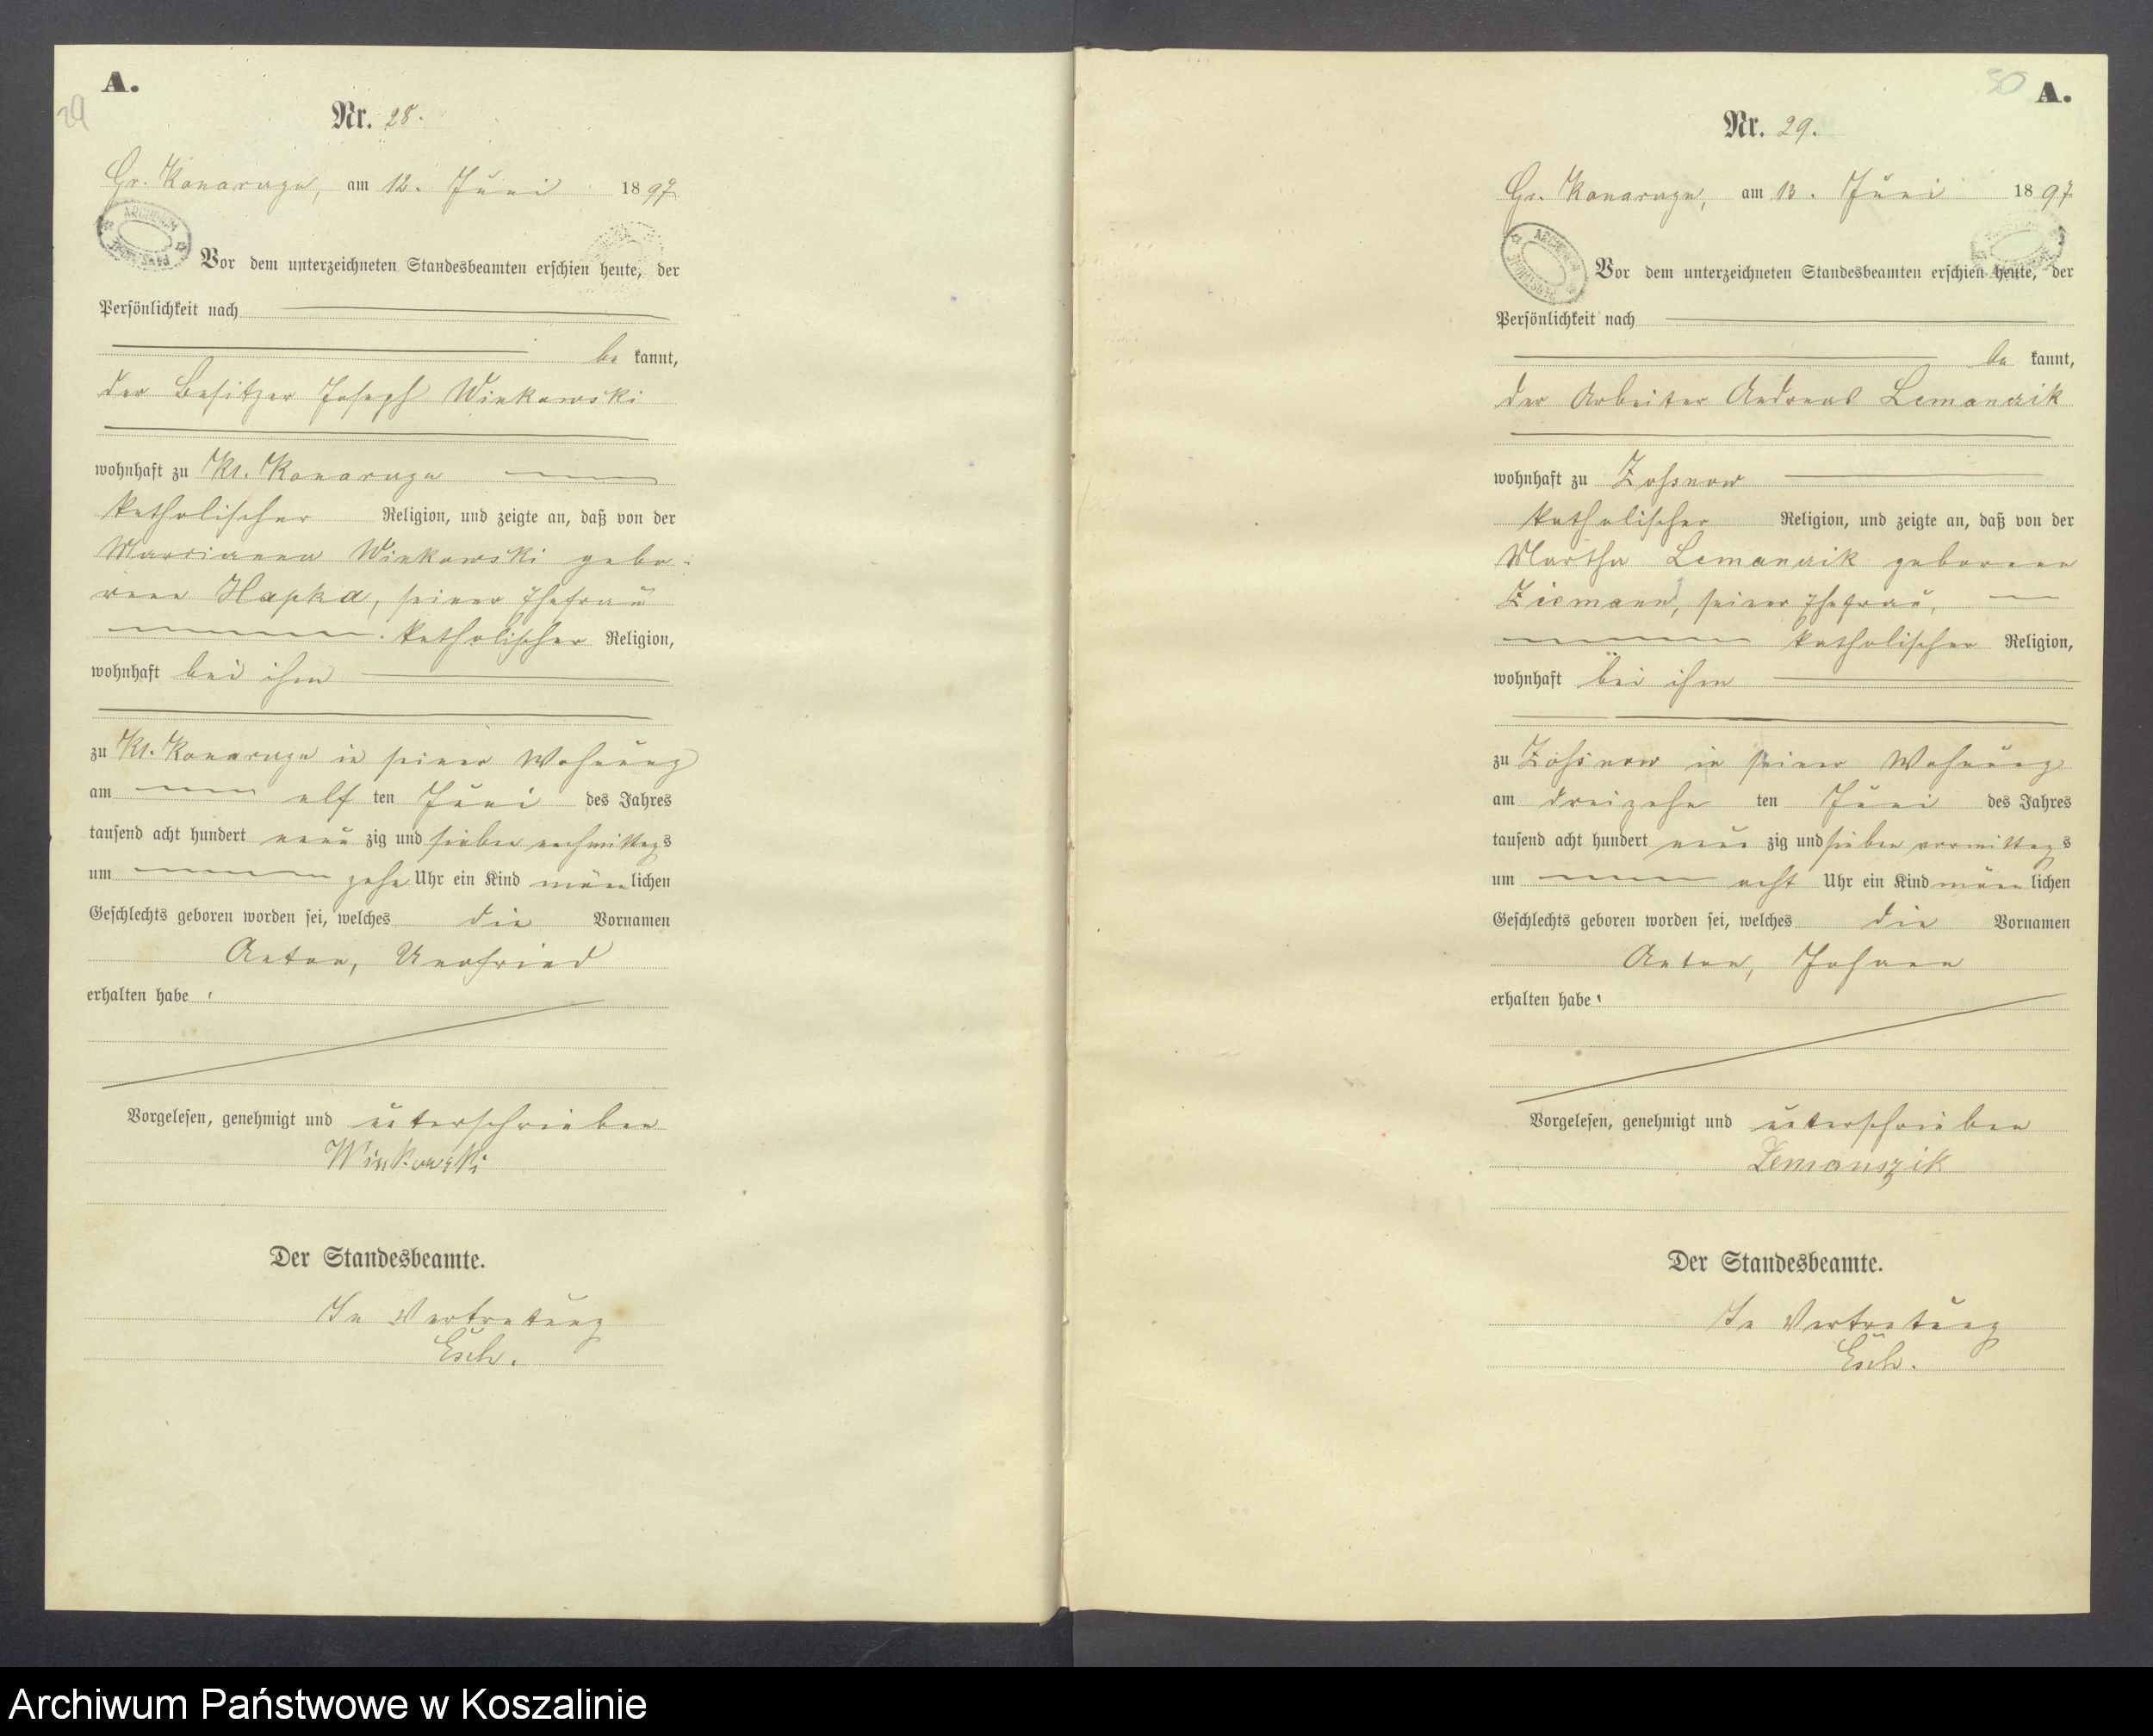 A.
29
Nr. 28.
Gr. Konarzyn, am 12. Juni 1897
Vor dem unterzeichneten Standesbeamten erschien heute, der
Persönlichkeit nach
be kannt,
der Besitzer Joseph Winkowski
wohnhaft zu Kl. Konarzyn
katholischer Religion, und zeigte an, daß von der
Marrianna Winkowski gebo-
rene Hapka, seiner Ehefrau
katholischer Religion,
wohnhaft bei ihm
zu Kl. Konarzyn in seiner Wohnung
am elf ten Juni des Jahres
tausend acht hundert neun zig und sieben nachmittags
um zehn Uhr ein Kind männlichen
Geschlechts geboren worden sei, welches die Vornamen
Anton,
erhalten habe.
Vorgelesen, genehmigt und unterschrieben
Winkowski
Der Standesbeamte.
In Vertretung
Esch.
30
A.
Nr. 29.
Gr. Konarzyn, am 13. Juni 1897
Vor dem unterzeichneten Standesbeamten erschien heute, der
Persönlichkeit nach
be kannt,
der Arbeiter Andreas Lemanczik
wohnhaft zu Zossnow
katholischer Religion, und zeigte an, daß von der
Martha Lemanczik geborenen
Ziemann, seiner Ehefrau,
katholischer Religion,
wohnhaft bei ihm
zu Zossnow in seiner Wohnung
am dreizehn ten Juni des Jahres
tausend acht hundert neun zig und sieben vormittags
um acht Uhr ein Kind männlichen
Geschlechts geboren worden sei, welches die Vornamen
Anton, Johann
erhalten habe.
Vorgelesen, genehmigt und unterschrieben
Lemanszik
Der Standesbeamte.
In Vertretung
Esch.
Archiwum Państwowe w Koszalinie